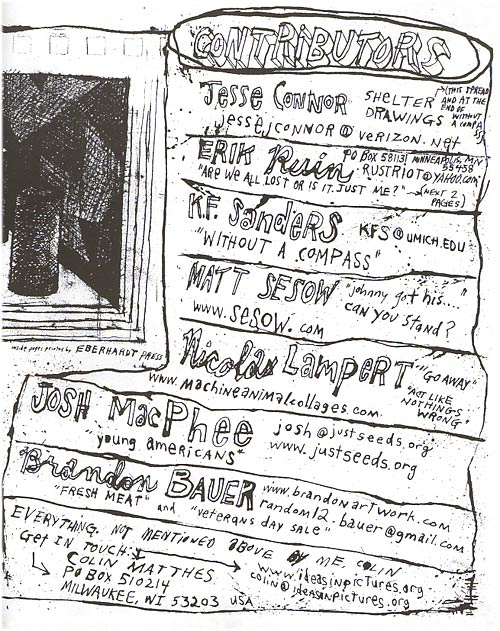 CONTRIBUTORS
Jesse Connor
SHELTER DRAWINGS
(THIS SPREAD AND AT THE END OF WITHOUT A COMPASS)
jessejconnor@verizon.net
ERIK Ruin
PO BOX 581131 MINNEAPOLIS, MN 55458
RUSTRIOT@YAHOO.com
"ARE WE ALL LOST OR IS IT JUST ME?" (NEXT 2 PAGES)
K.F. Sanders
KFS@UMICH.EDU
"WITHOUT A COMPASS"
MATT SESOW
"johnny got his...."
can you stand?
www.sesow.com
EBERHARDT PRESS
Nicolas LAMPERT
"GO AWAY"
"ACT LIKE NOTHINGS WRONG"
www.machineanimalcollages.com
JOSH MacPhee
josh@justseeds.org
young americans"
www.justseeds.org
Brandon BAUER
www.brandonartwork.com
random12.bauer@gmail.com
"FRESH MEAT" and "veterans day sale"
EVERYTHING NOT MENTIONED ABOVE BY ME, COLIN
Get IN TOUCH:
COLIN MATTHES
www.ideasinpictures.org
PO BOX 510214
colin@ideasinpictures.org
MILWAUKEE, WI 53203 USA